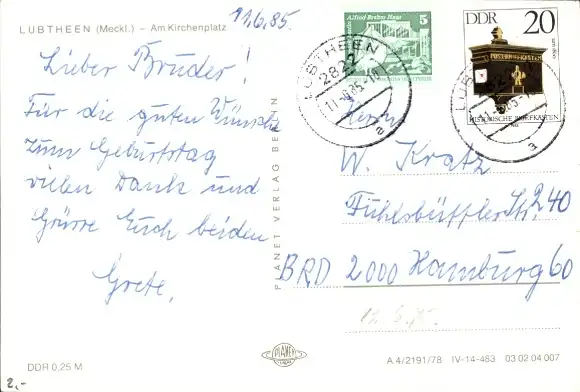 LUBTHEEN (Meckl.) – Am Kirchenplatz
11.6.85.
Lieber Bruder!
Für die guten Wünsche
zum Geburtstag
vielen Dank und
Grüsse Euch beiden
Grete.
DDR 0,25 M
2,-
PLANET VERLAG BERLIN
PLANET
Alfred-Brehm-Haus
5
DDR
20
um 1860
HISTORISCHE BRIEFKÄSTEN
LÜBTHEEN
2822
11.-6.85-10
a
LÜBTHEEN
a
Herrn
W. Kratz
Fuhlsbüttler Str. 240
BRD 2000 Hamburg 60
12.6.85.
A 4/2191/78 IV-14-483 03 02 04 007